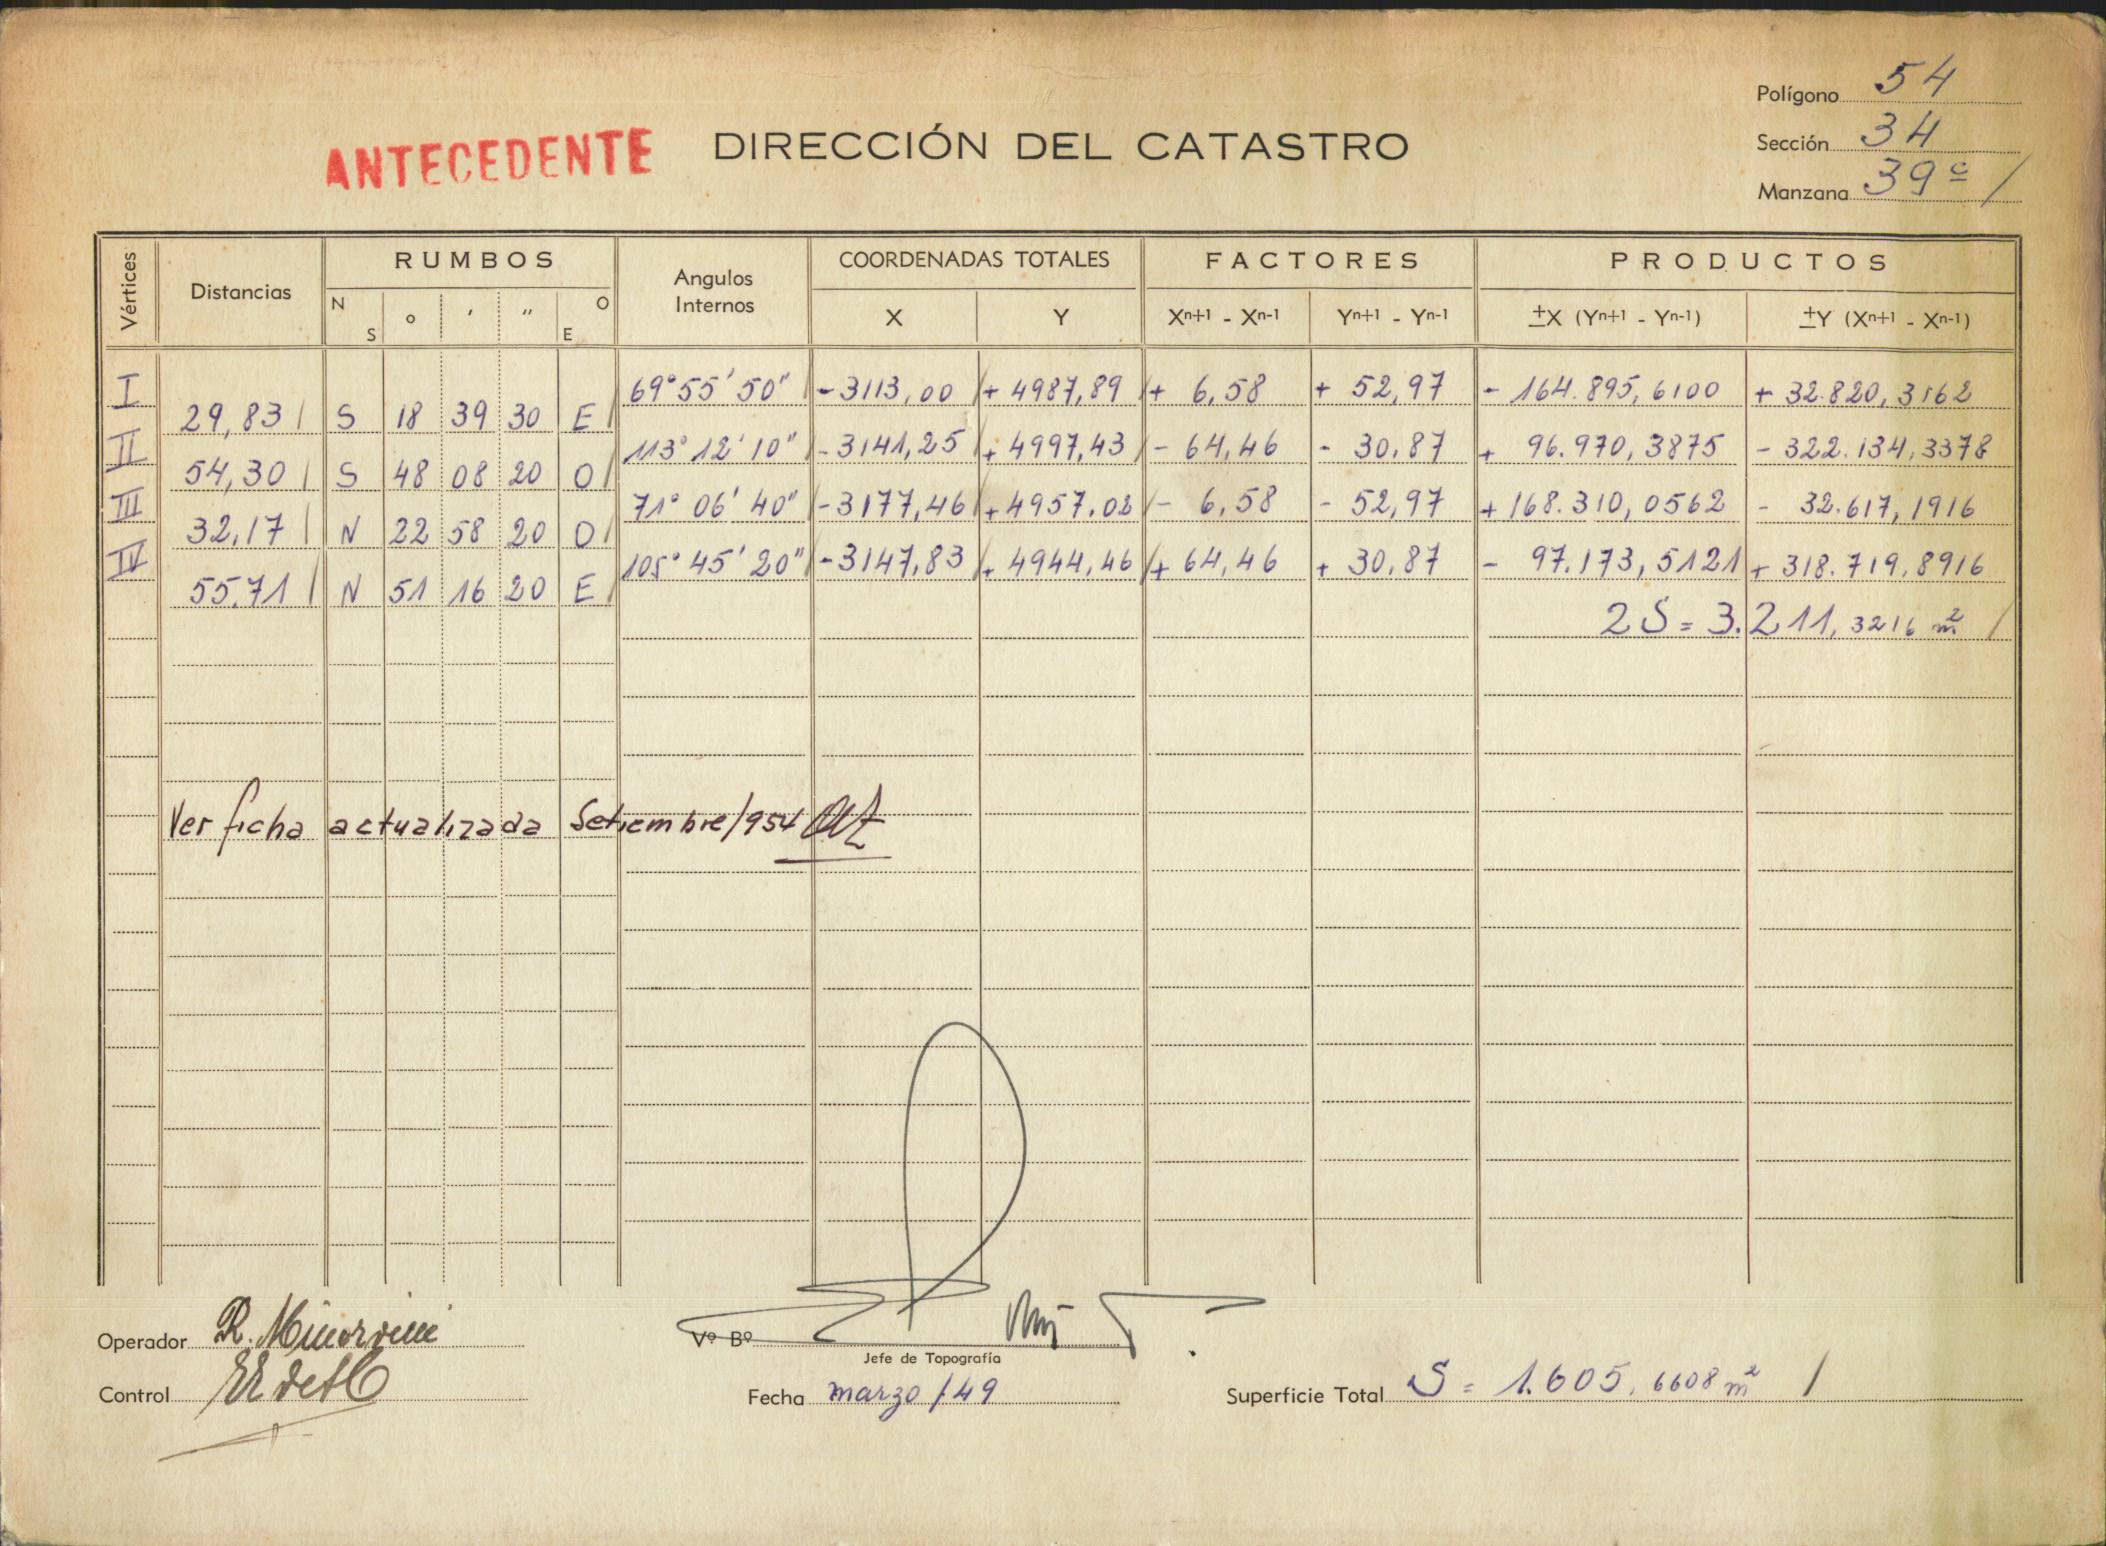 Polígono 54
ANTECEDENTE DIRECCIÓN DEL CATASTRO
Sección 34
Manzana 39c /
Vértices Distancias RUMBOS Angulos Internos COORDENADAS TOTALES FACTORES PRODUCTOS
N S ° ′ ″ O E X Y Xn+1 - Xn-1 Yn+1 - Yn-1 ±X (Yn+1 - Yn-1) ±Y (Xn+1 - Xn-1)
I 69° 55' 50" - 3113,00 + 4987,89 + 6,58 + 52,97 - 164.895,6100 + 32.820,3162
29,83 S 18 39 30 E
II 113° 12' 10" - 3141,25 + 4997,43 - 64,46 - 30,87 + 96.970,3875 - 322.134,3378
54,30 S 48 08 20 O
III 71° 06' 40" - 3177,46 + 4957,02 - 6,58 - 52,97 + 168.310,0562 - 32.617,1916
32,17 N 22 58 20 O
IV 105° 45' 20" - 3147,83 + 4944,46 + 64,46 + 30,87 - 97.173,5121 + 318.719,8916
55,71 N 51 16 20 E
2S = 3.211,3216 m² /
Ver ficha actualizada Setiembre/954
Operador R. Minorvini
Vº Bº
Jefe de Topografía
Control
Fecha marzo/49
Superficie Total S = 1.605,6608 m² /